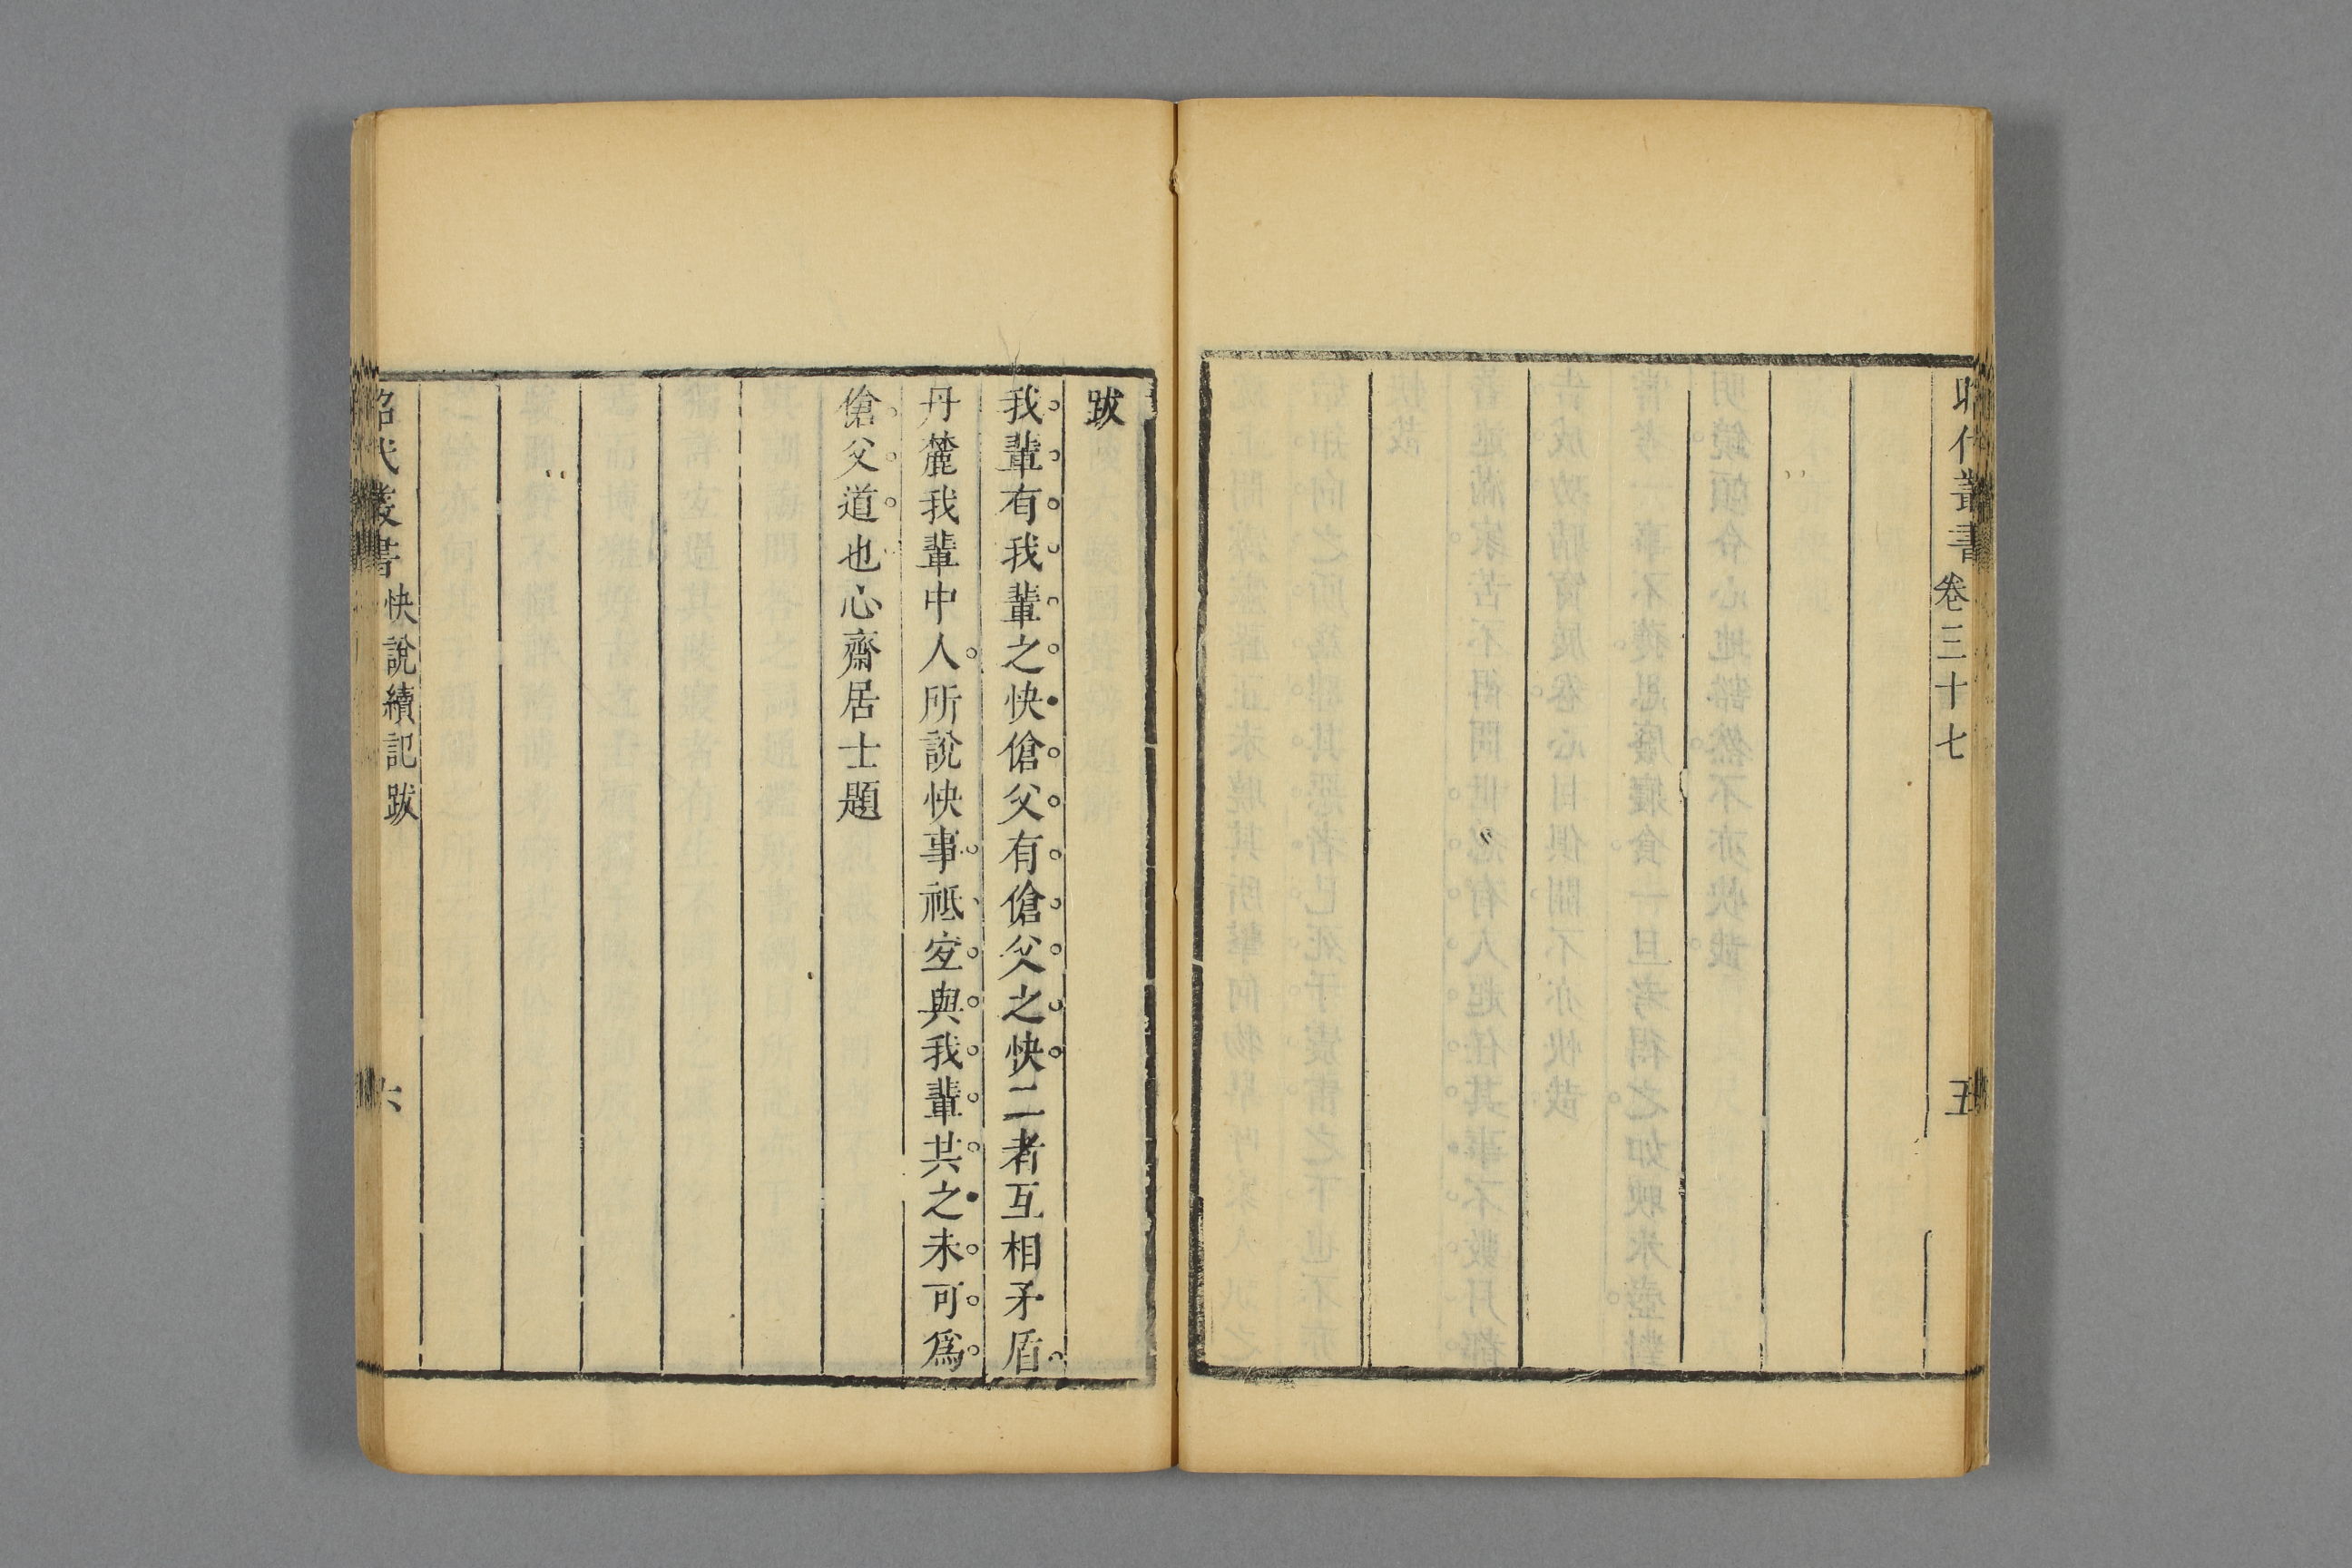 昭代叢書
卷三十七
五
跋
我輩有我輩之快傖父有傖父之快二者互相矛盾
丹麓我輩中人所說快事祗宜與我輩共之未可爲
傖父道也心齋居士題
昭代叢書
快說續記跋
六